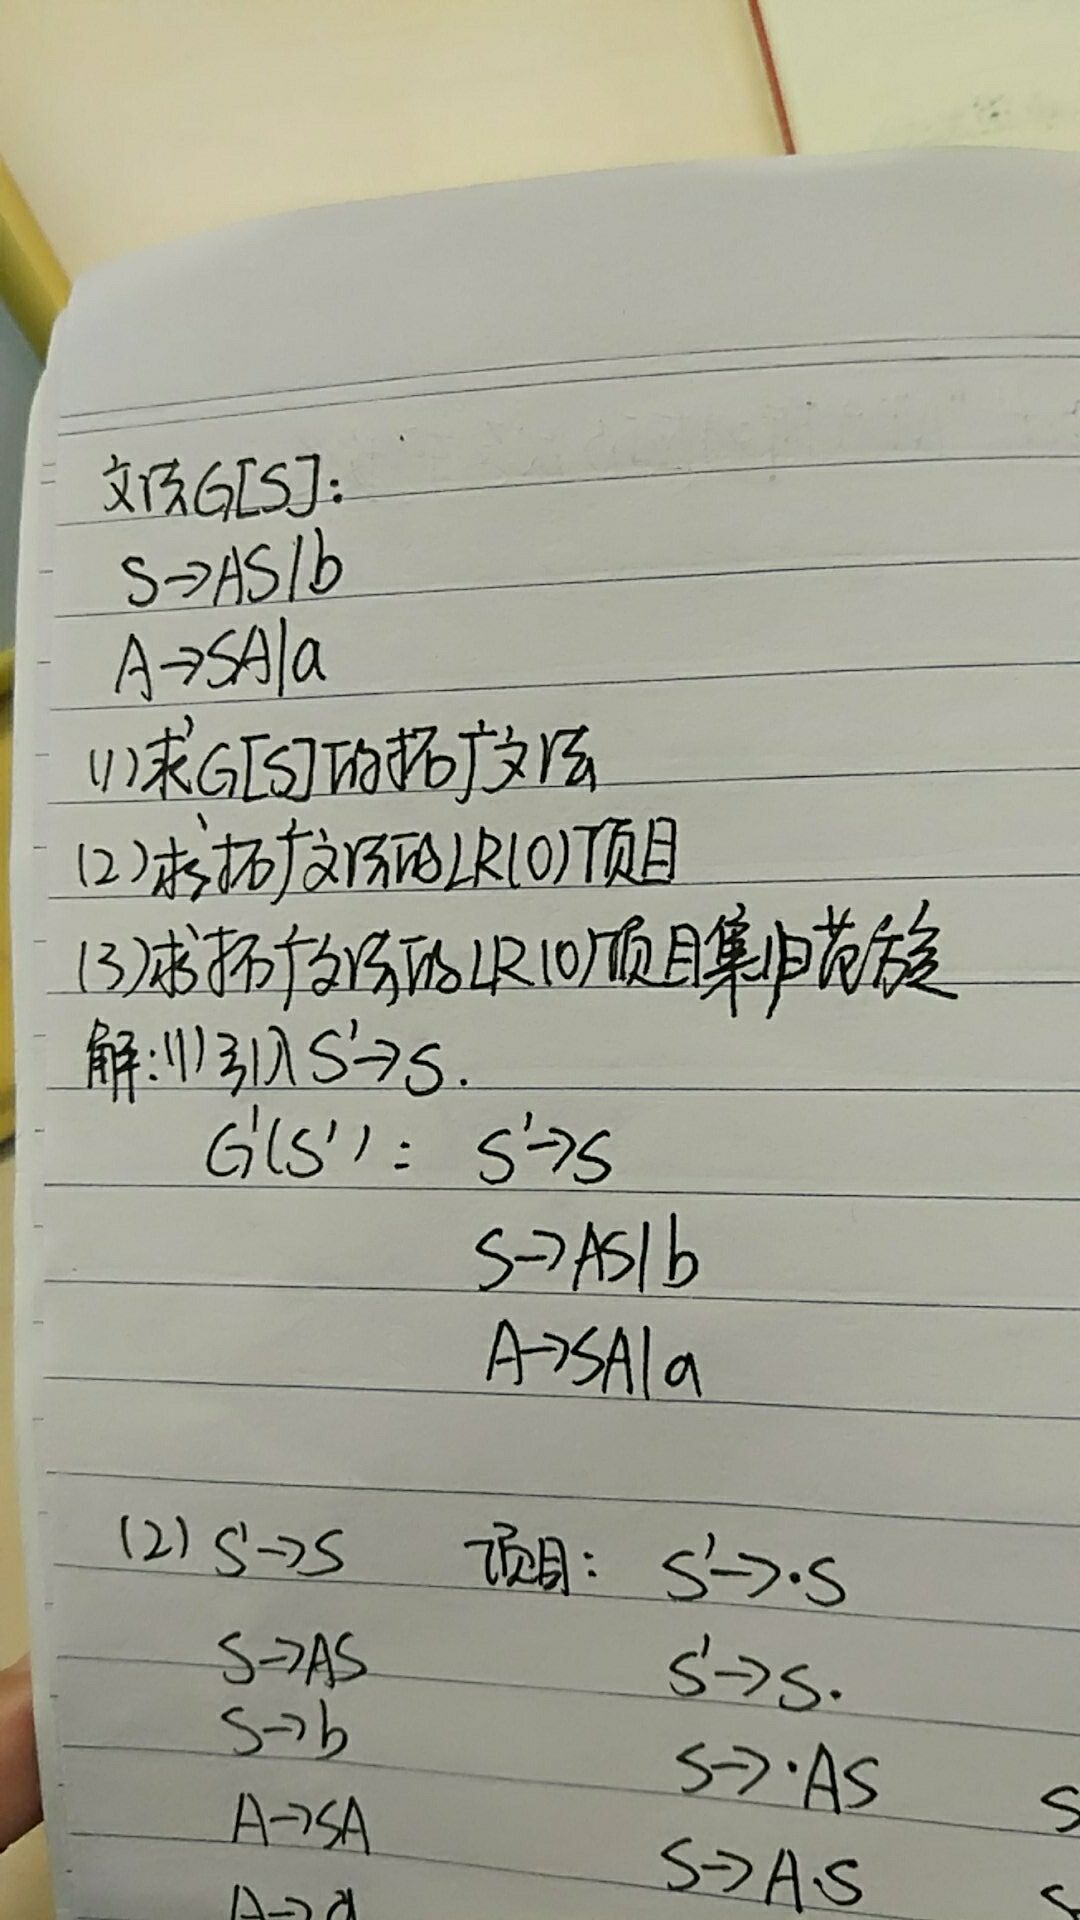 文法G[S]:
S→AS|b
A→SA|a
(1)求G[S]的拓广文法
(2)求拓广文法的LR(0)项目
(3)求拓广文法的LR(0)项目集规范族
解:(1)引入S'→S.
G'(S'): S'→S
S→AS|b
A→SA|a
(2) S'→S 项目: S'→·S
S→AS S'→S.
S→b S→·AS
A→SA S→A·S
A→a